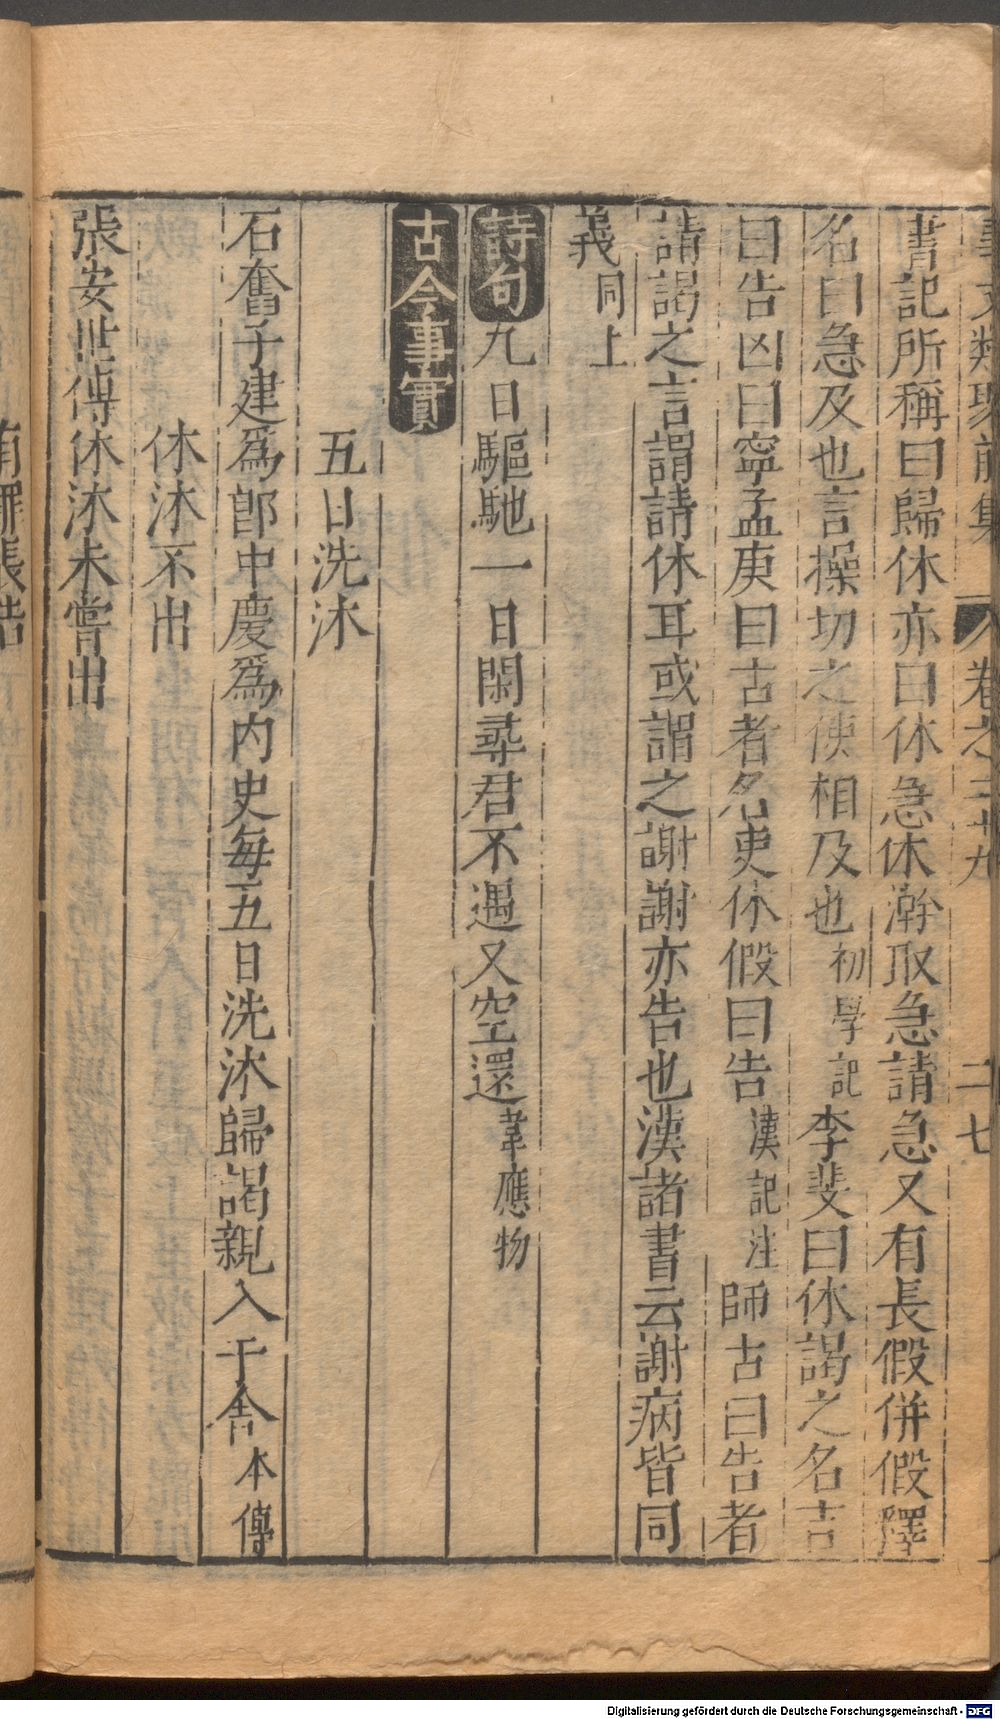 事文類聚前集 卷之二十九 二七
書記所稱曰歸休亦曰休急休澣取急請急又有長假併假釋
名曰急及也言操切之使相及也初學記李斐曰休謁之名吉
曰告凶曰寧孟庚曰古者名吏休假曰告漢記注師古曰告者
請謁之言謂請休耳或謂之謝謝亦告也漢諸書云謝病皆同
義同上
詩句九日驅馳一日閑尋君不遇又空還韋應物
古今事實
五日洗沐
石奮子建為郎中慶為內史每五日洗沐歸謁親入于舍本傳
休沐不出
張安世傳休沐未嘗出
Digitalisierung gefördert durch die Deutsche Forschungsgemeinschaft - DFG